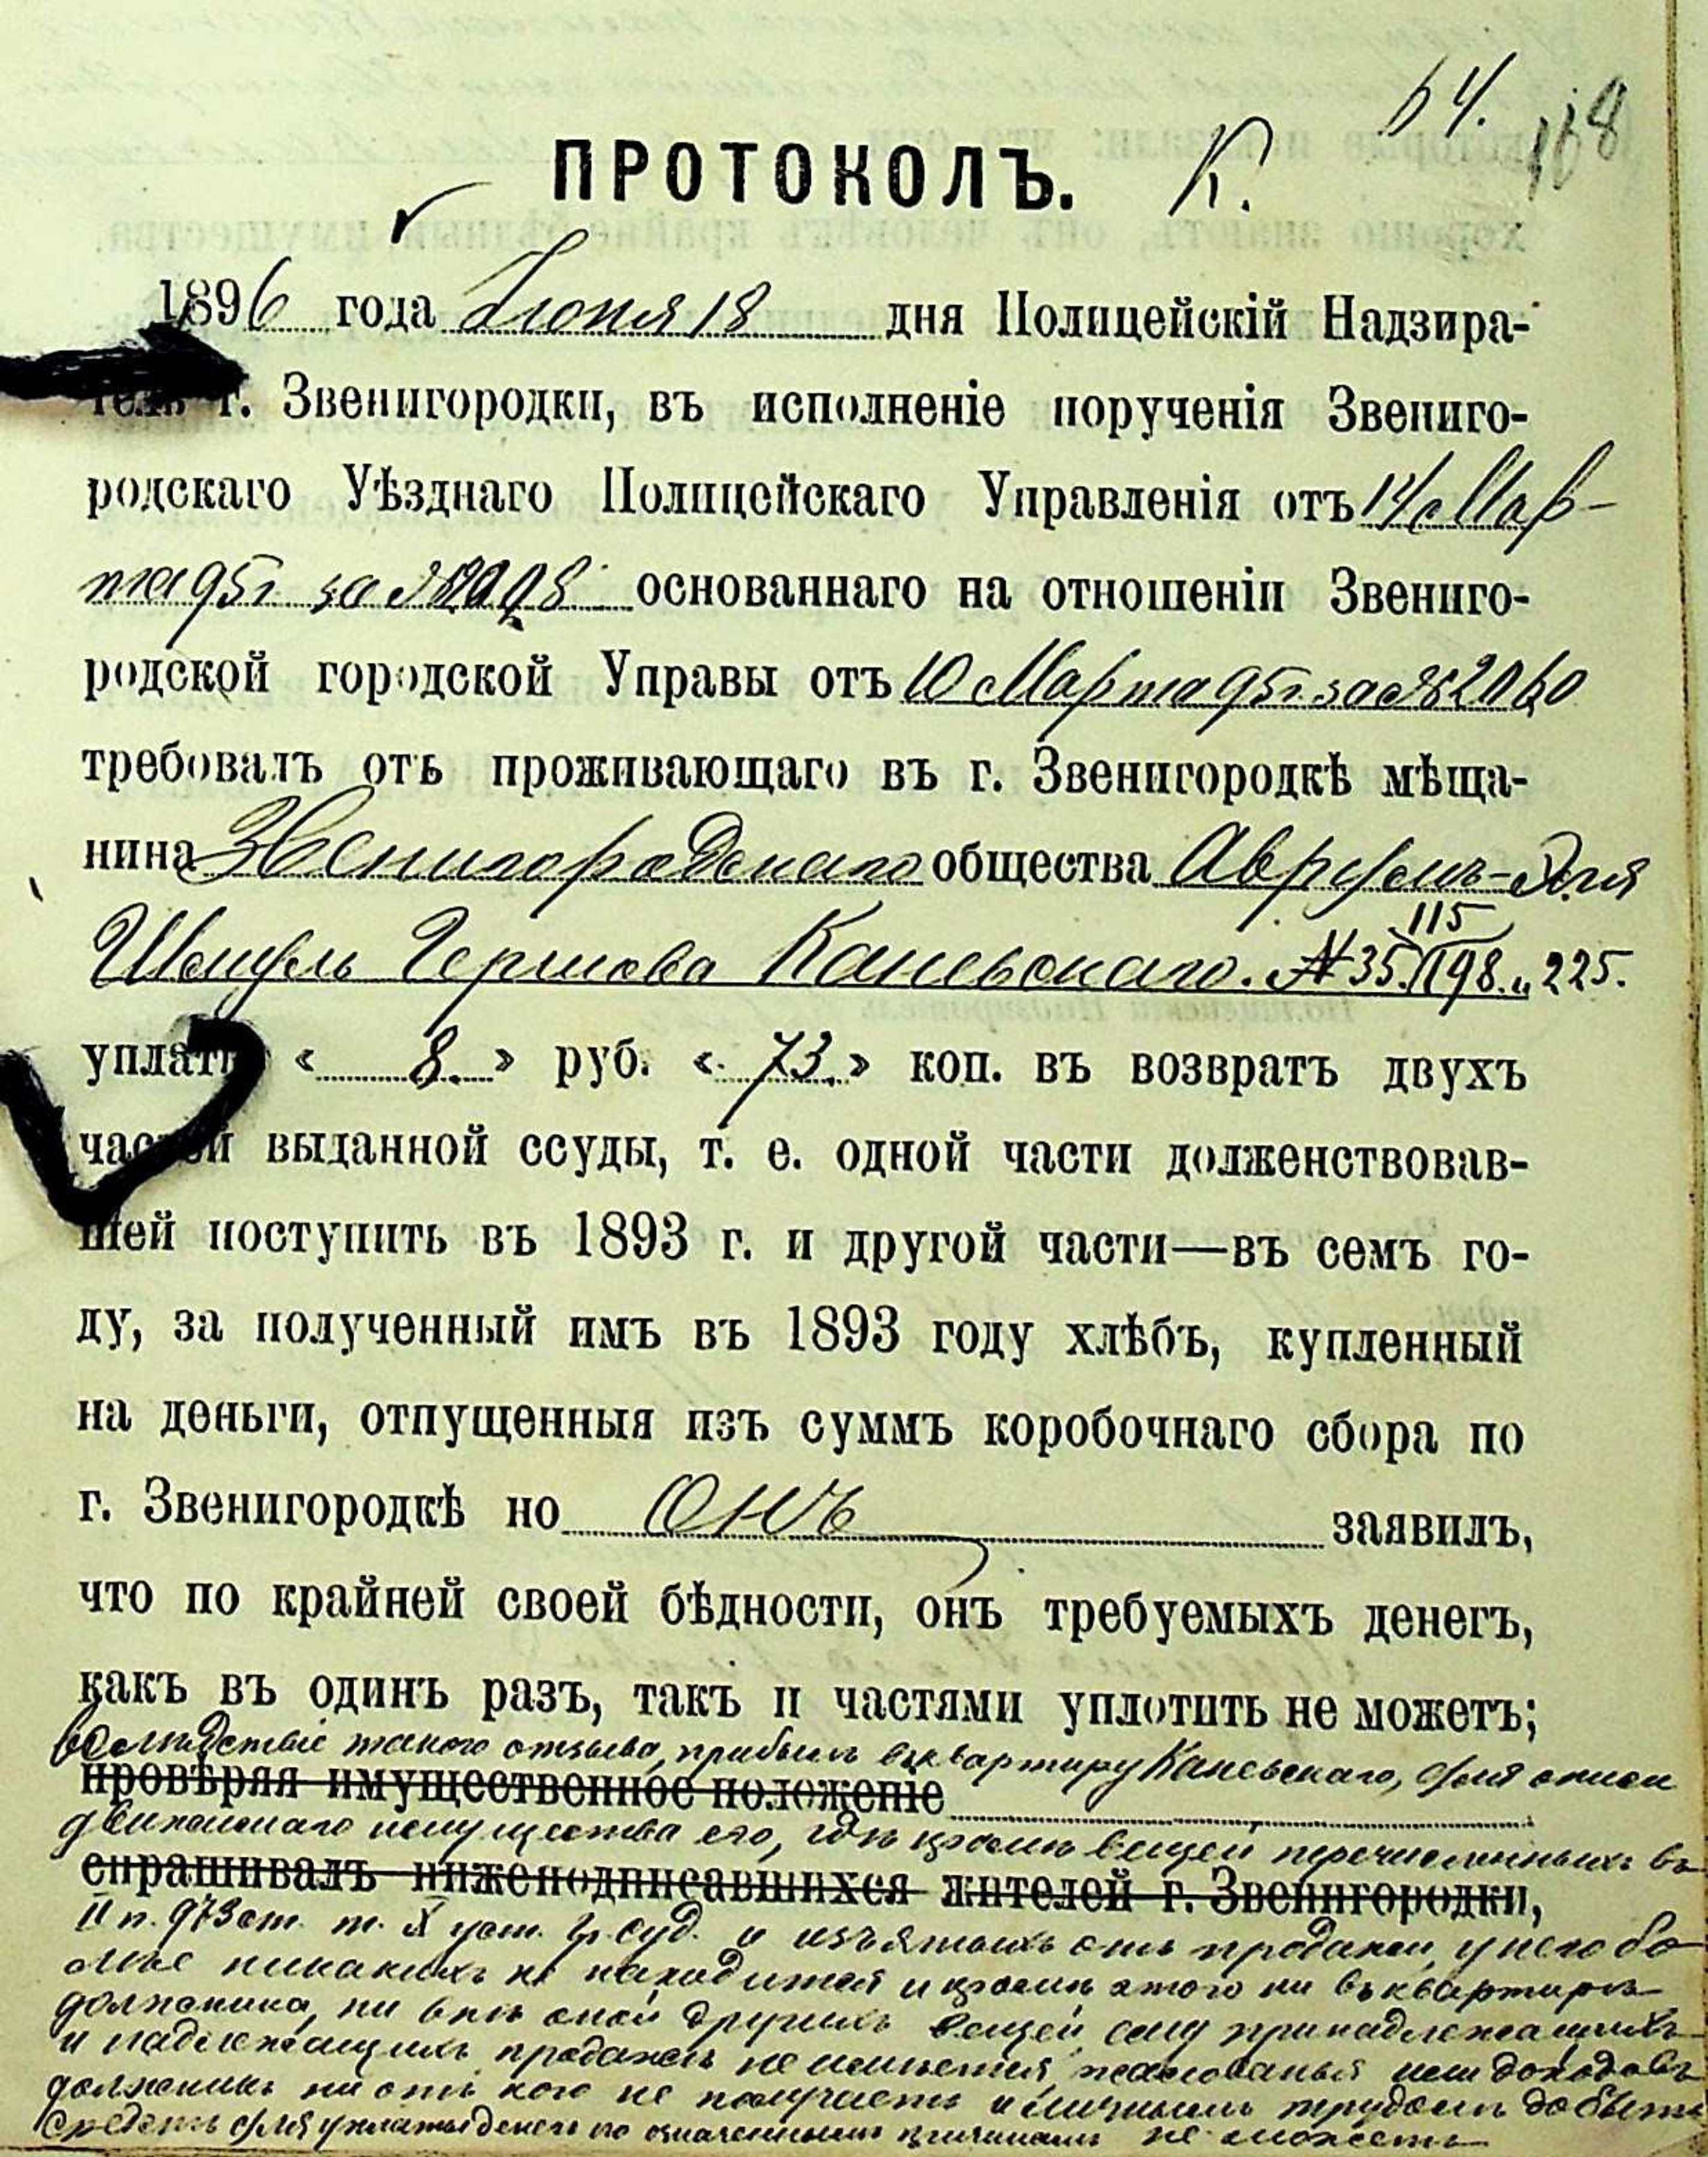 64.
168
ПРОТОКОЛЪ. К.
1896 года Іюня 18 дня Полицейскій Надзира-
тель г. Звенигородки, въ исполненіе порученія Звениго-
родскаго Уѣзднаго Полицейскаго Управленія отъ 14 Мар-
та 95 г за № основаннаго на отношеніи Звениго-
родской городской Управы отъ 10 Марта 95 г. за № 2060
требовалъ отъ проживающаго въ г. Звенигородкѣ мѣща-
нина Звенигородскаго общества Аврумъ-Эля
115
Шмуль Гершова Каневскаго. № 35./198. и 225.
уплаты « 8. » руб. « 73. » коп. въ возвратъ двухъ
частей выданной ссуды, т. е. одной части долженствовав-
шей поступить въ 1893 г. и другой части—въ семъ го-
ду, за полученный имъ въ 1893 году хлѣбъ, купленный
на деньги, отпущенныя изъ суммъ коробочнаго сбора по
г. Звенигородкѣ но Онъ заявилъ,
что по крайней своей бѣдности, онъ требуемыхъ денегъ,
какъ въ одинъ разъ, такъ и частями уплотить не можетъ;
вслѣдствіе такого отзыва, прибылъ въ квартиру Каневскаго, для описи
провѣряя имущественное положеніе
движимаго имущества его, гдѣ кромѣ вещей перечисленныхъ въ
спрашивалъ нижеподписавшихся жителей г. Звенигородки,
II п. 973 ст. т. X уст. гр. суд. и изъятыхъ отъ продажи, у него бо
лѣе никакихъ не находится и кромѣ этого ни въ квартирѣ
должника, ни внѣ оной другихъ вещей, ему принадлежащихъ
и надлежащихъ продажѣ не имѣется, жалованья или доходовъ
должникъ ни отъ кого не получаетъ и личнымъ трудомъ добыть
средствъ для уплаты денегъ по означеннымъ причинамъ не можетъ